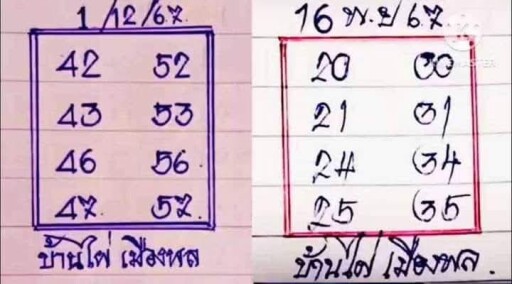 1/12/67.
42 52
43 53
46 56
47 57.
บ้านไผ่ เมืองพล
16 พ.ย 67.
20 30
21 31
24 34
25 35
บ้านไผ่ เมืองพล.